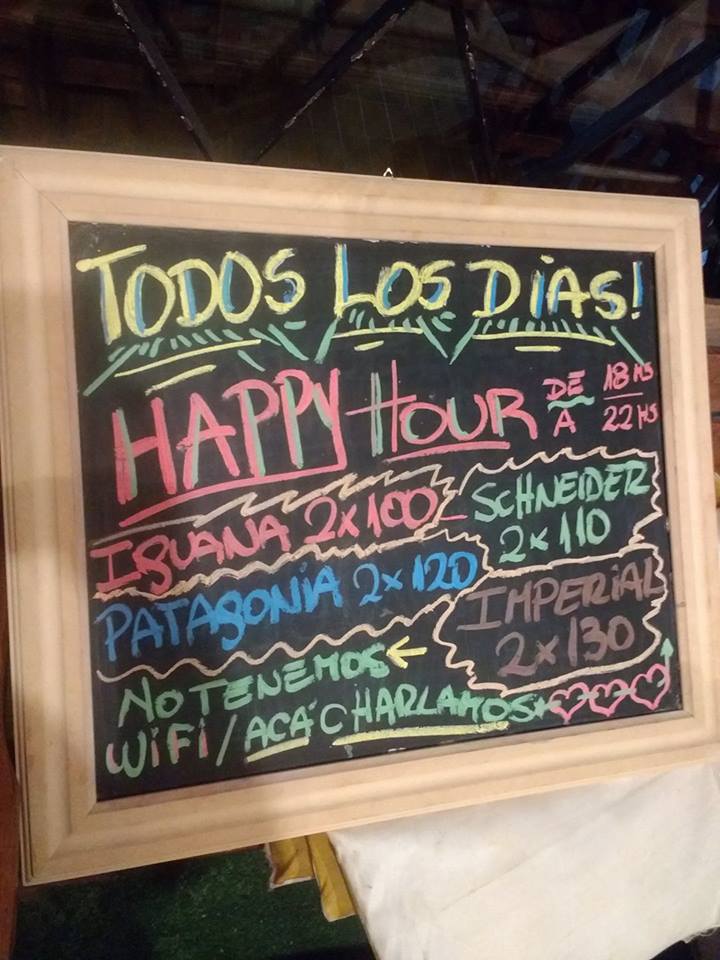 TODOS LOS DiAS!
HAPPY HOUR DE 18 HS
A 22 HS
IGUANA 2x100
SCHNEIDER
2x 110
PATAGONiA 2x 120
IMPERiAL
2x130
NO TENEMOS
WiFi / ACÁ CHARLAMOS